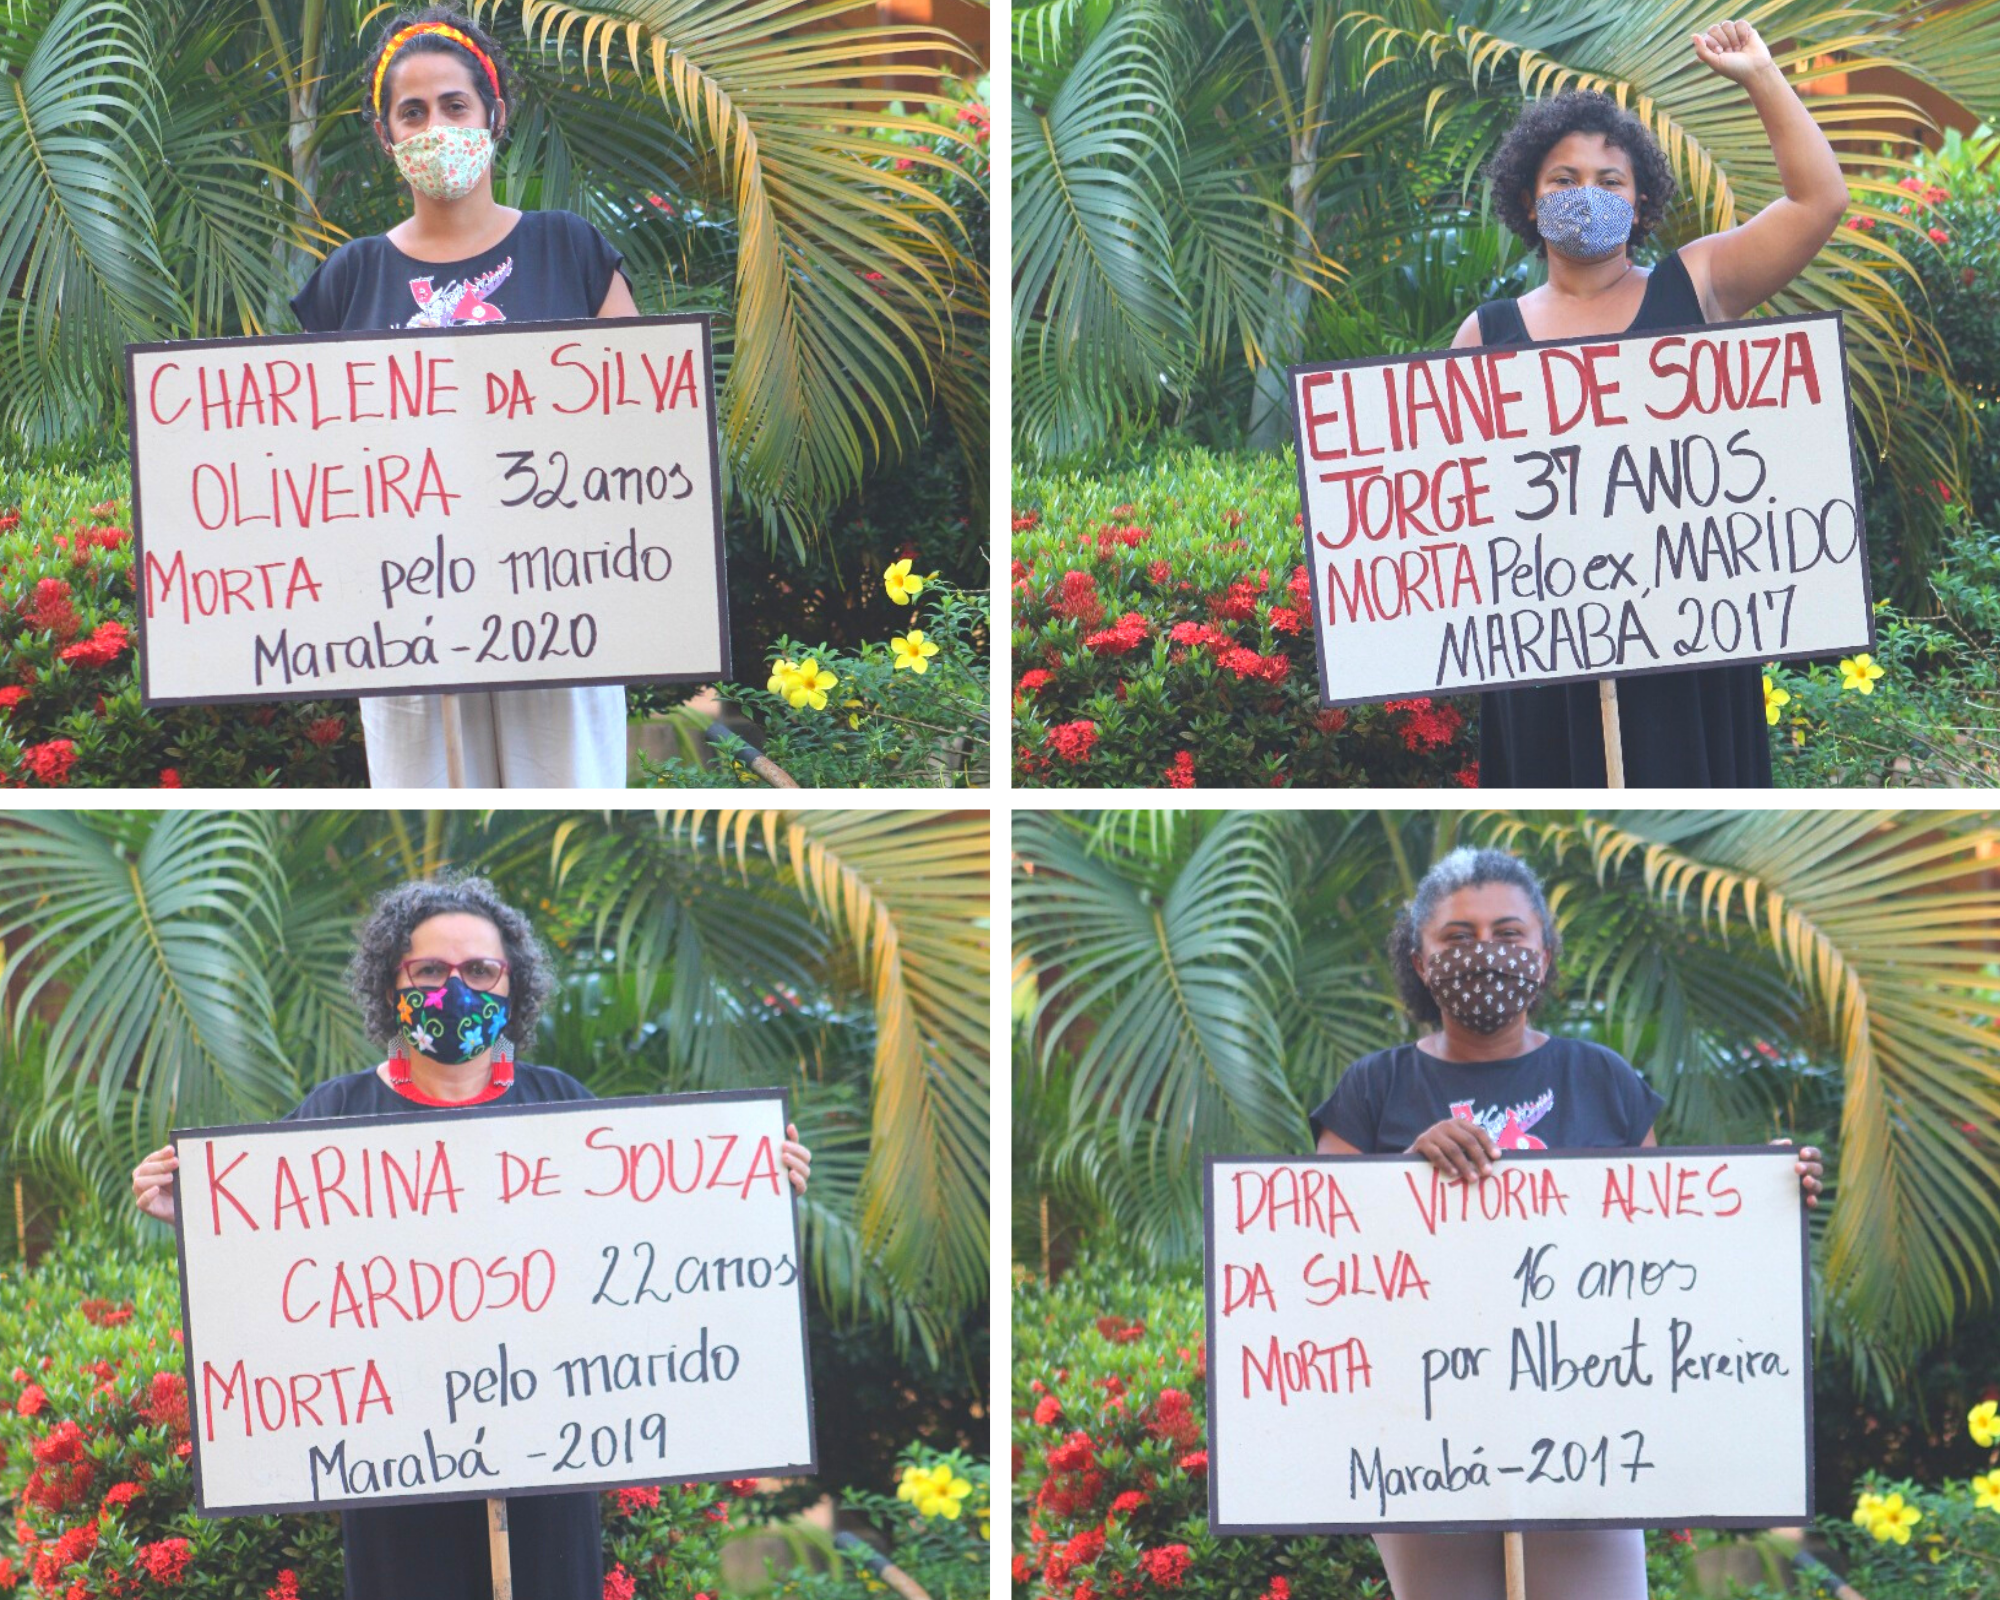 CHARLENE DA SILVA
OLIVEIRA 32 anos
MORTA pelo marido
Marabá - 2020
ELIANE DE SOUZA
JORGE 37 ANOS.
MORTA Pelo ex, MARIDO
MARABÁ, 2017
KARINA DE SOUZA
CARDOSO 22 anos
MORTA pelo marido
Marabá - 2019
DARA VITORIA ALVES
DA SILVA 16 anos
MORTA por Albert Pereira
Marabá - 2017